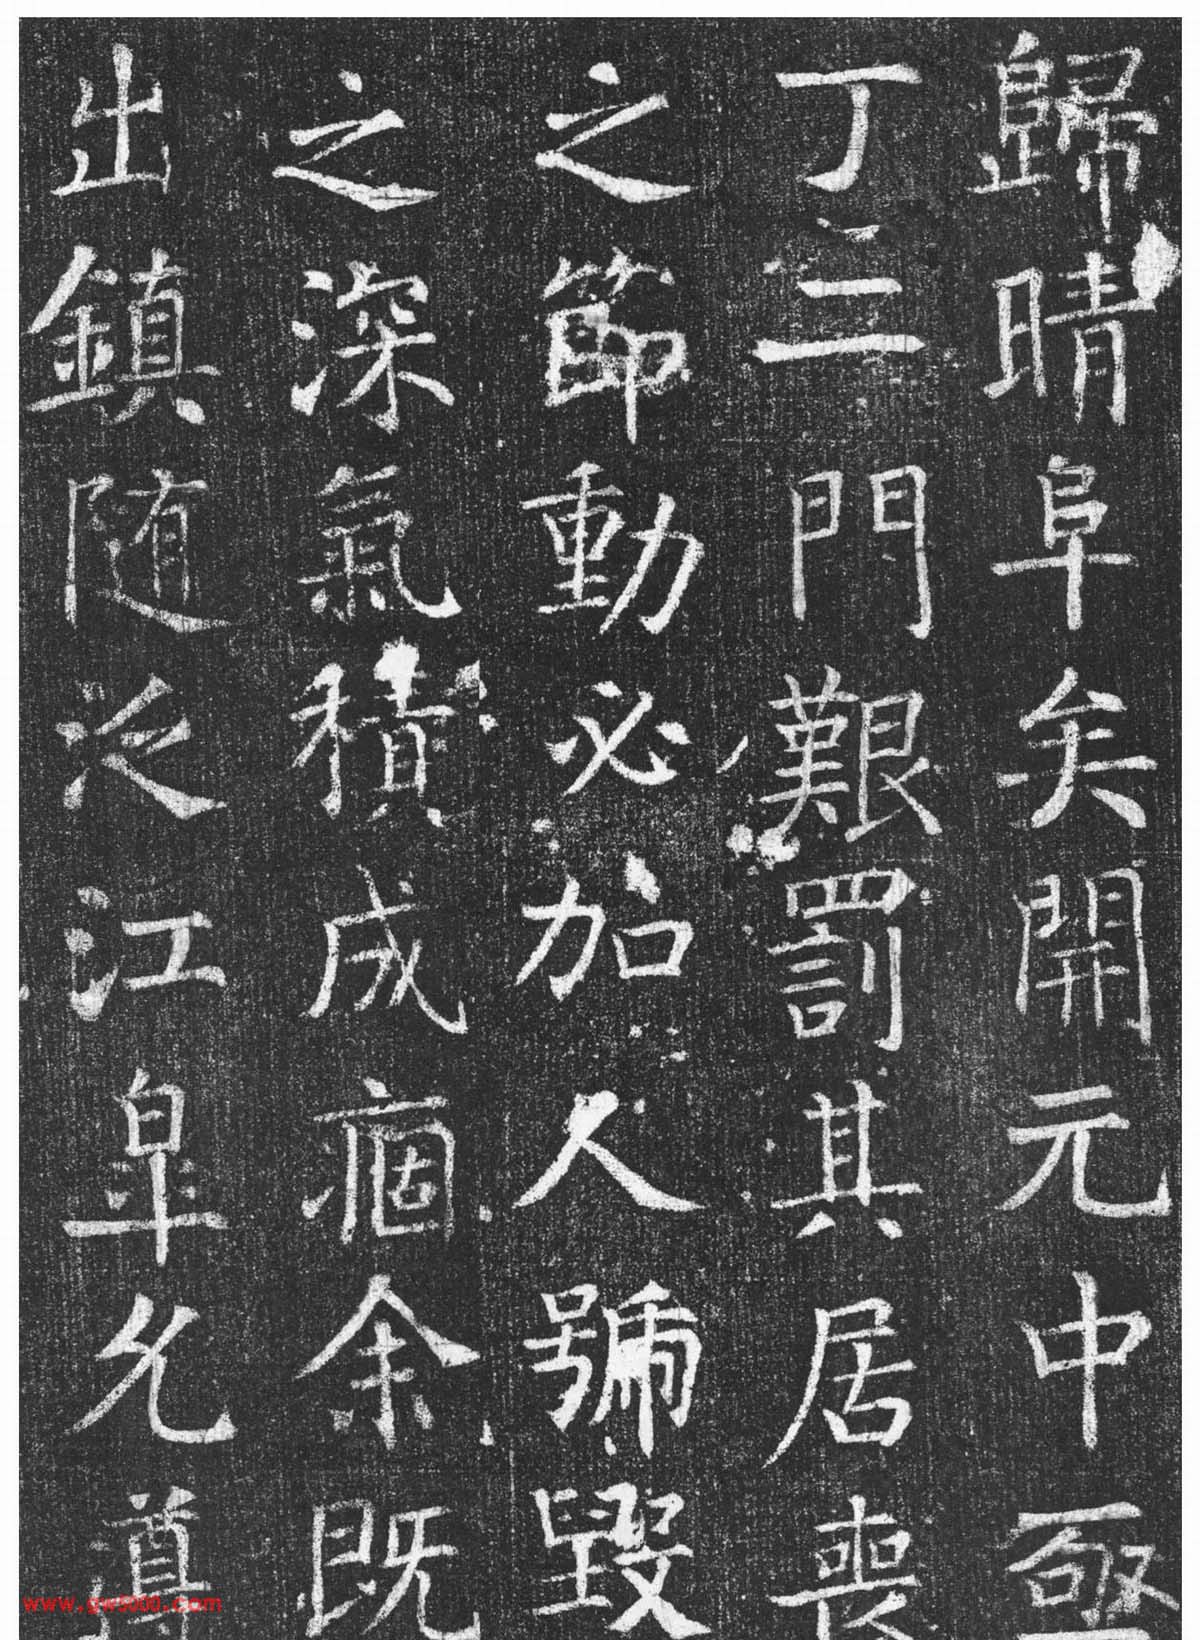 歸晴阜矣開元中亟
丁二門艱罰其居喪
之節動必加人號毀
之深氣積成痼余既
出鎮随泛江皐允遵
www.gw5000.com